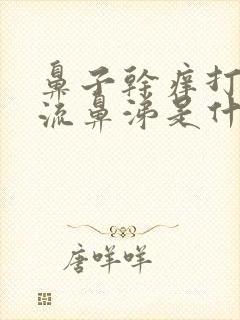 鼻子幹癢打
流鼻涕是什
唐咩咩